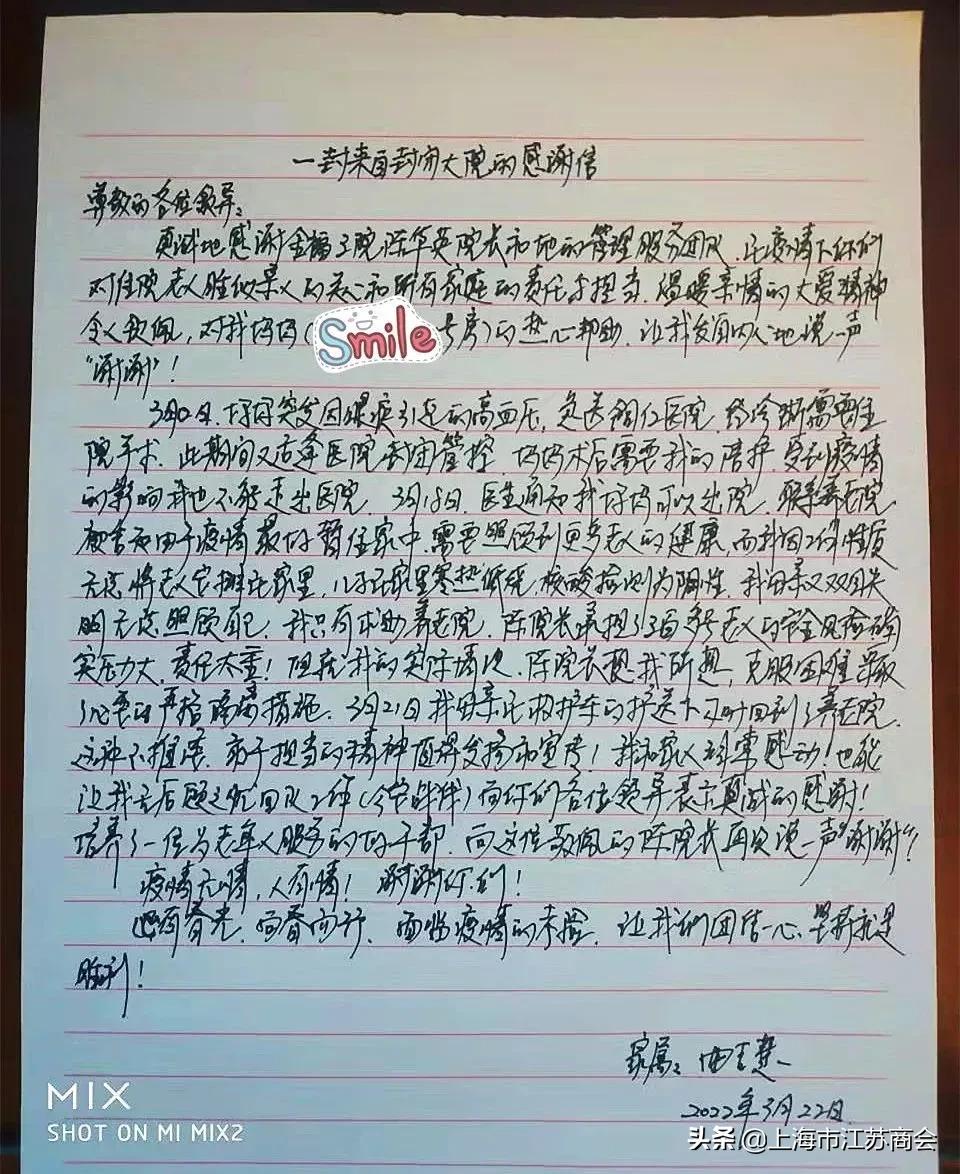 一封来自封闭大院的感谢信
尊敬的各位领导：
真诚地感谢金福子院陈华英院长和她的管理服务团队，在疫情下你们
对住院老人胜似亲人的关心和所有家庭的责任与担当，温暖亲情的大爱精神
令人钦佩，对我妈妈(
Smile
房)的热心帮助，让我发自内心地说一声
“谢谢”！
妈妈突发因眼疾引起的高血压，急送铜仁医院，经诊断需要住
院手术，此期间又适逢医院封闭管控，妈妈术后需要我的陪护，受到疫情
的影响我也不能走出医院，3月18日，医生通知我妈妈可以出院，联系养老院
被告知由于疫情最好暂住家中，需要照顾到更多老人的健康，而我因工作性质
无法将老人安排在家里，儿子在家里寒热低烧，核酸检测为阴性，我母亲又双目失
明无法照顾自己，我只有求助养老院，陈院长承担了3百多号老人的安全风险确
实压力大，责任太重！但在了我的实际情况，陈院长想我所想，克服困难采取
了必要的严格隔离措施，3月21日我母亲在救护车的护送下及时回到了养老院，
这种不推诿，敢于担当的精神值得发扬和宣传！我和家人非常感动！也能
让我无后顾之忧回队工作(公安战线)向你们各位领导表示真诚的感谢！
培养了一位为老年人服务的好干部，向这位敬佩的陈院长再次说一声“谢谢”！
疫情无情，人有情！谢谢你们！
心有春光，向春而行，面临疫情的考验，让我们团结一心，坚持就是
胜利！
家属：
2022年3月22日
MIX
SHOT ON MI MIX2
头条 @上海市江苏商会